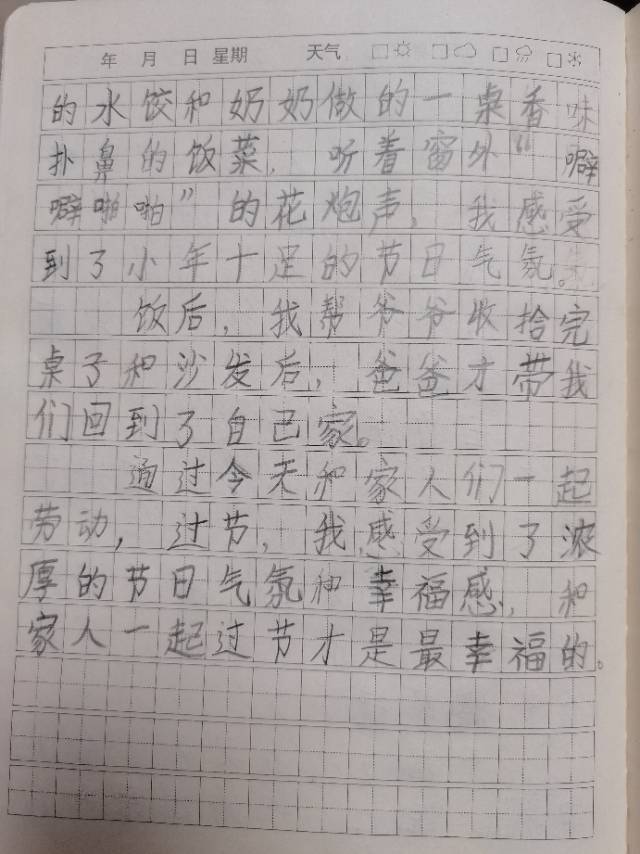 年 月 日 星期 天气
的水饺和奶奶做的一桌香味
扑鼻的饭菜，听着窗外“噼
噼啪啪”的花炮声，我感受
到了小年十足的节日气氛。
饭后，我帮爷爷收拾完
桌子和沙发后，爸爸才带我
们回到了自己家。
通过今天和家人们一起
劳动，过节，我感受到了浓
厚的节日气氛和幸福感，和
家人一起过节才是最幸福的。